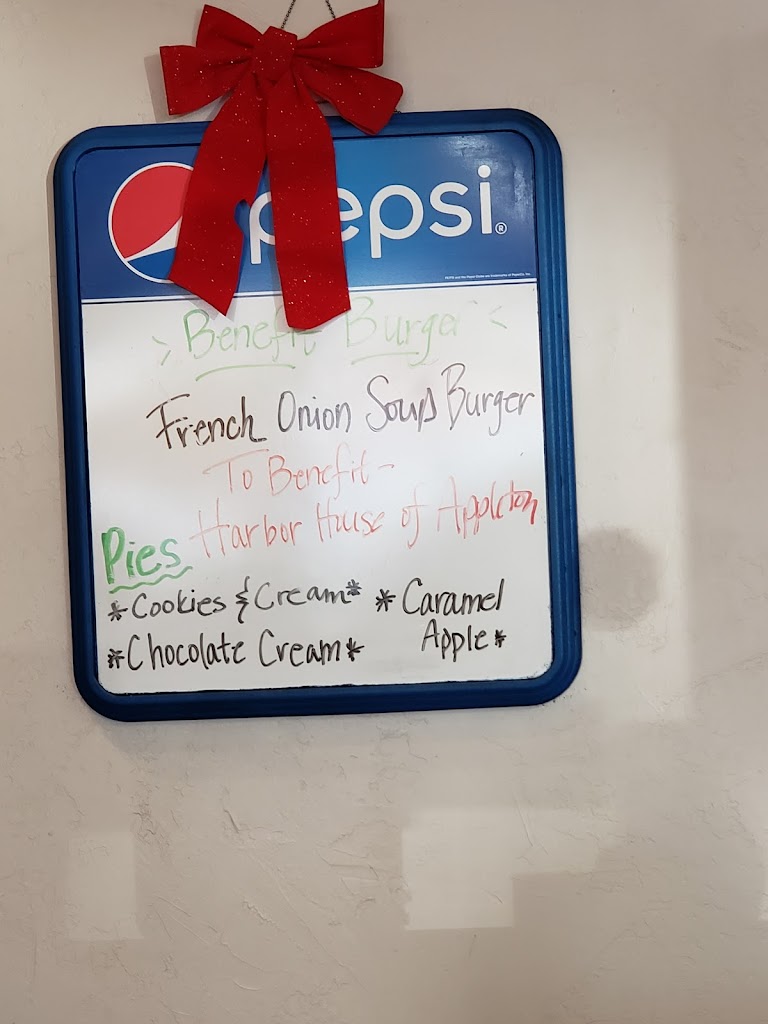 pepsi®
Benefit Burger
French Onion Soup Burger
To Benefit-
Harbor House of Appleton
Pies
*Cookies & Cream*
*Chocolate Cream*
*Caramel
Apple*